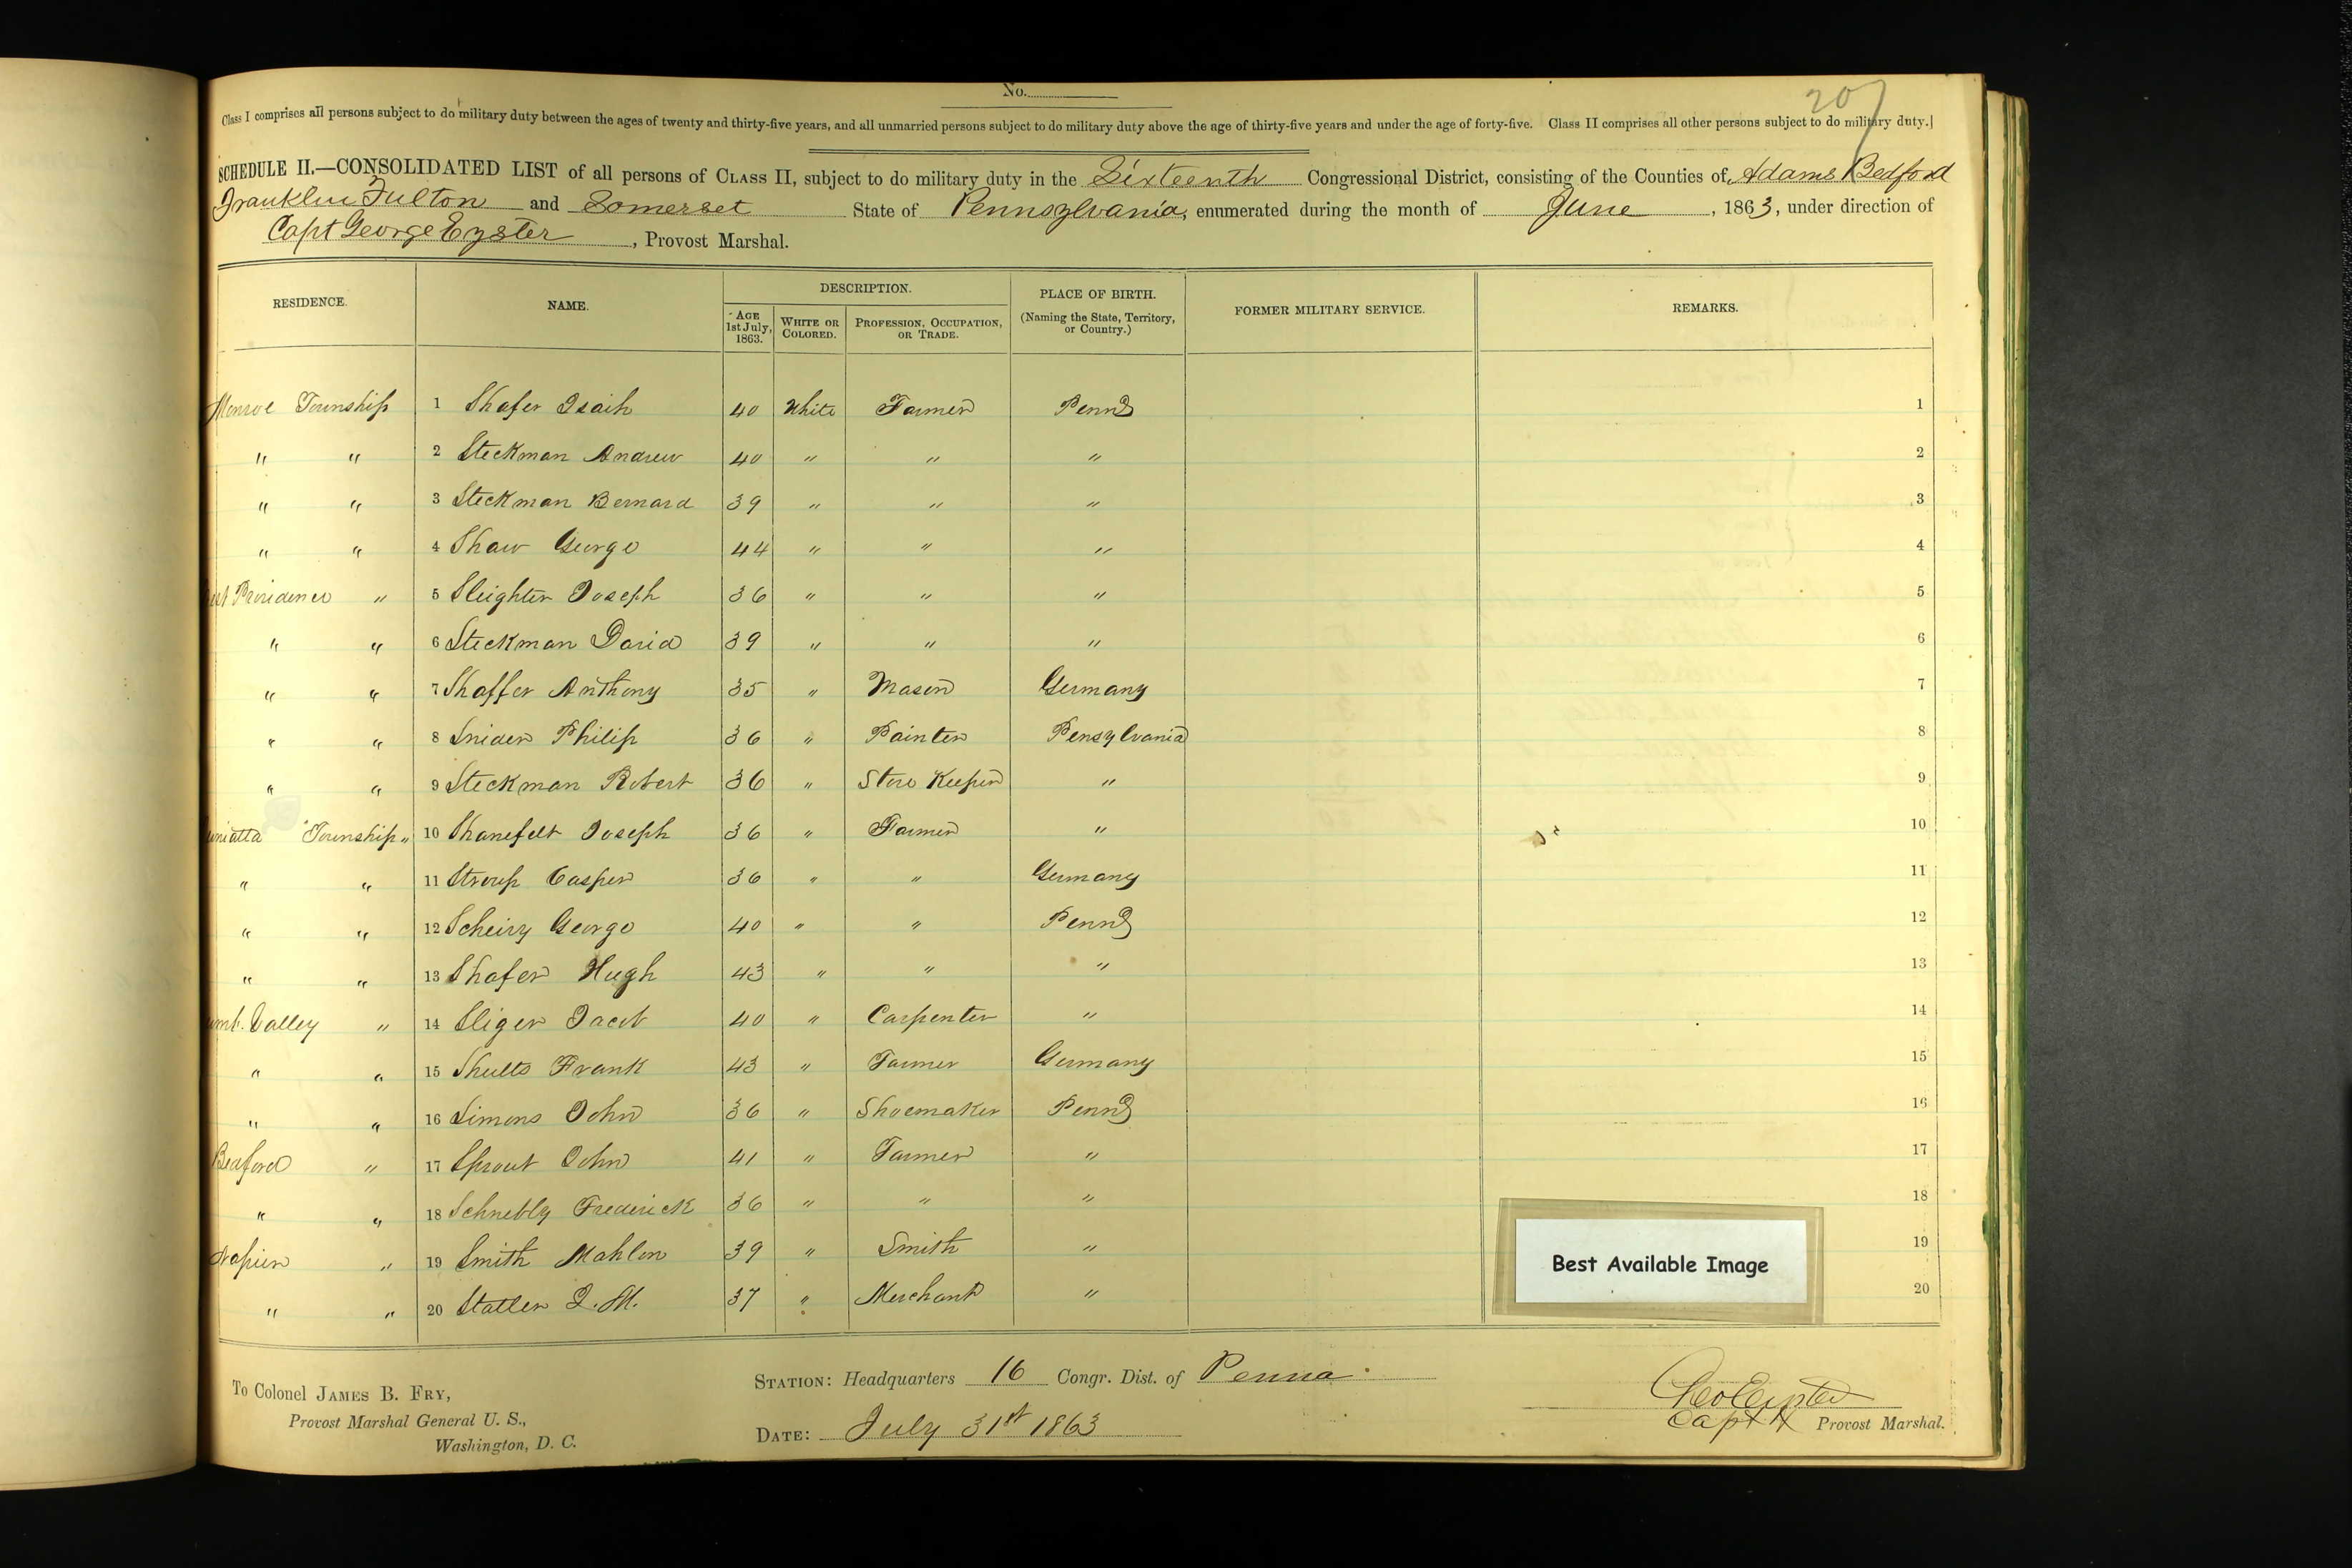 No.
207
Class I comprises all persons subject to do military duty between the ages of twenty and thirty-five years, and all unmarried persons subject to do military duty above the age of thirty-five years and under the age of forty-five. Class II comprises all other persons subject to do military duty.
SCHEDULE II.—CONSOLIDATED LIST of all persons of CLASS II, subject to do military duty in the Sixteenth Congressional District, consisting of the Counties of Adams Bedford
Franklin Fulton and Somerset State of Pennsylvania, enumerated during the month of June, 1863, under direction of
Capt George Eyster, Provost Marshal.
RESIDENCE. NAME. DESCRIPTION. PLACE OF BIRTH. (Naming the State, Territory, or Country.) FORMER MILITARY SERVICE. REMARKS.
AGE 1st July, 1863. WHITE OR COLORED. PROFESSION, OCCUPATION, OR TRADE.
Monroe Township 1 Shafer Isaih 40 White Farmer Penna 1
" " 2 Steckman Andrew 40 " " " 2
" " 3 Steckman Bernard 39 " " " 3
" " 4 Shaw George 44 " " " 4
est Providence " 5 Sleighter Joseph 36 " " " 5
" " 6 Steckman David 39 " " " 6
" " 7 Shaffer Anthony 35 " Mason Germany 7
" " 8 Snider Philip 36 " Painter Pensylvania 8
" " 9 Steckman Robert 36 " Store Keeper " 9
uniatta Township " 10 Shanefelt Joseph 36 " Farmer " 10
" " 11 Stroup Casper 36 " " Germany 11
" " 12 Scheiry George 40 " " Penna 12
" " 13 Shafer Hugh 43 " " " 13
umb. Valley " 14 Sliger Jacob 40 " Carpenter " 14
" " 15 Shults Frank 43 " Farmer Germany 15
" " 16 Simons John 36 " Shoemaker Penna 16
Bedford " 17 Sprout John 41 " Farmer " 17
" " 18 Schnebly Frederick 36 " " " 18
Napier " 19 Smith Mahlon 39 " Smith " 19
" " 20 Statler 37 " Merchant " 20
Best Available Image
To Colonel JAMES B. FRY,
Provost Marshal General U. S.,
Washington, D. C.
STATION: Headquarters 16 Congr. Dist. of Penna
DATE: July 31st 1863
Geo Eyster
Capt & Provost Marshal.